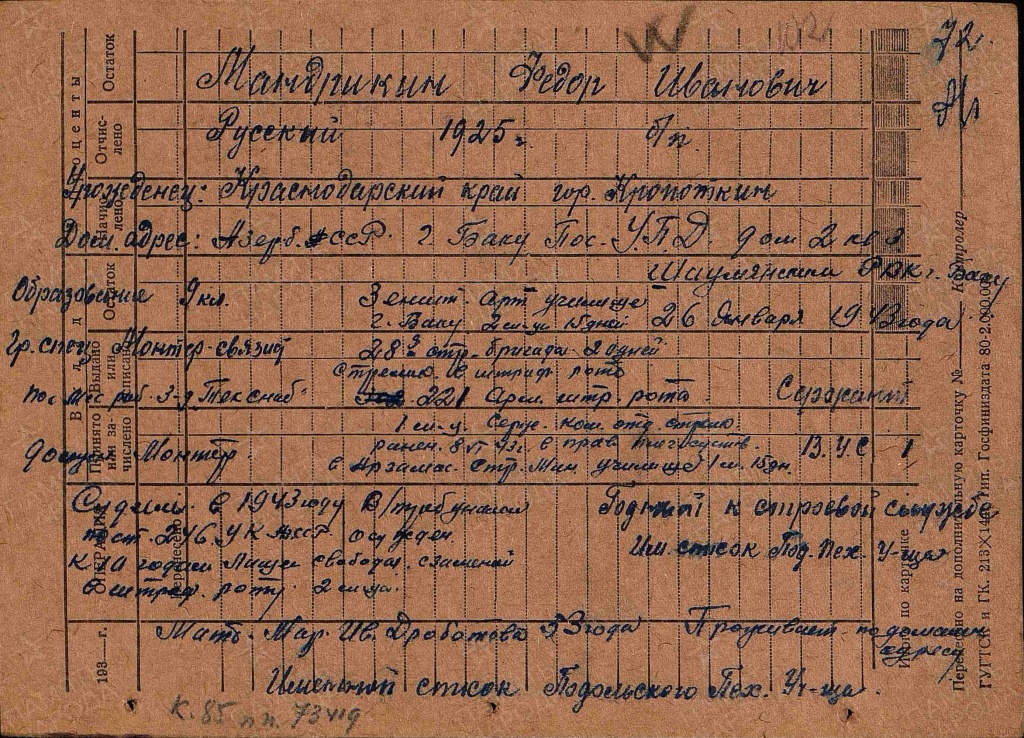 72.
Мандрикин Федор Иванович
Русский 1925 г. б/п.
Урожденец: Краснодарский край гор. Кропоткин
Дом. адрес: Азерб. ССР. г. Баку Пос. УПД. дом 2 кв 3
Шаумянским РВК г. Баку
Образование 9 кл. Зенит. Арт училище 26 Января 1943 года
г. Баку 2 м-ца 15 дней
Гр. спец. Монтер-связист 28 стр. бригада 2 дней
стрелок в штраф рота
Пос. мес. раб. З-д Токснаб 221 Арм. штр. рота. Сержант
1 м-ц. Серж. ком. отд. стрелк.
ранен. 8 VI 43 г. в прав
долж. Монтер. В.У.С 1
в Арзамас. Стр. Мин. училище 1 м. 15 дн.
Судим в 1943 году В/трибуналом Годный к строевой службе
ст. 246 УК АССР. осужден Им. список Под. Пех. У-ща
К 10 годам Лишен свободы, с заменой
в штраф. роту. 2 м-ца.
Мать. Мар. Ив. Дроботова 53 года Проживает по домашн.
адресу
Именной список Подольского Пех. Уч-ща.
К. 85 п.п. 73419
Проценты
Остаток
Отчис-
лено
Начис-
лено
Вклад
Остаток
Выдано
или
списано
Принято
или за-
числено
ОПЕРАЦИЯ
Перенесено
193 — г.
Итого по карточке
Перенесено на дополнительную карточку № Контролер
ГУГТСК и ГК. 213×146. Тип. Госфиниздата 80-2.000.000